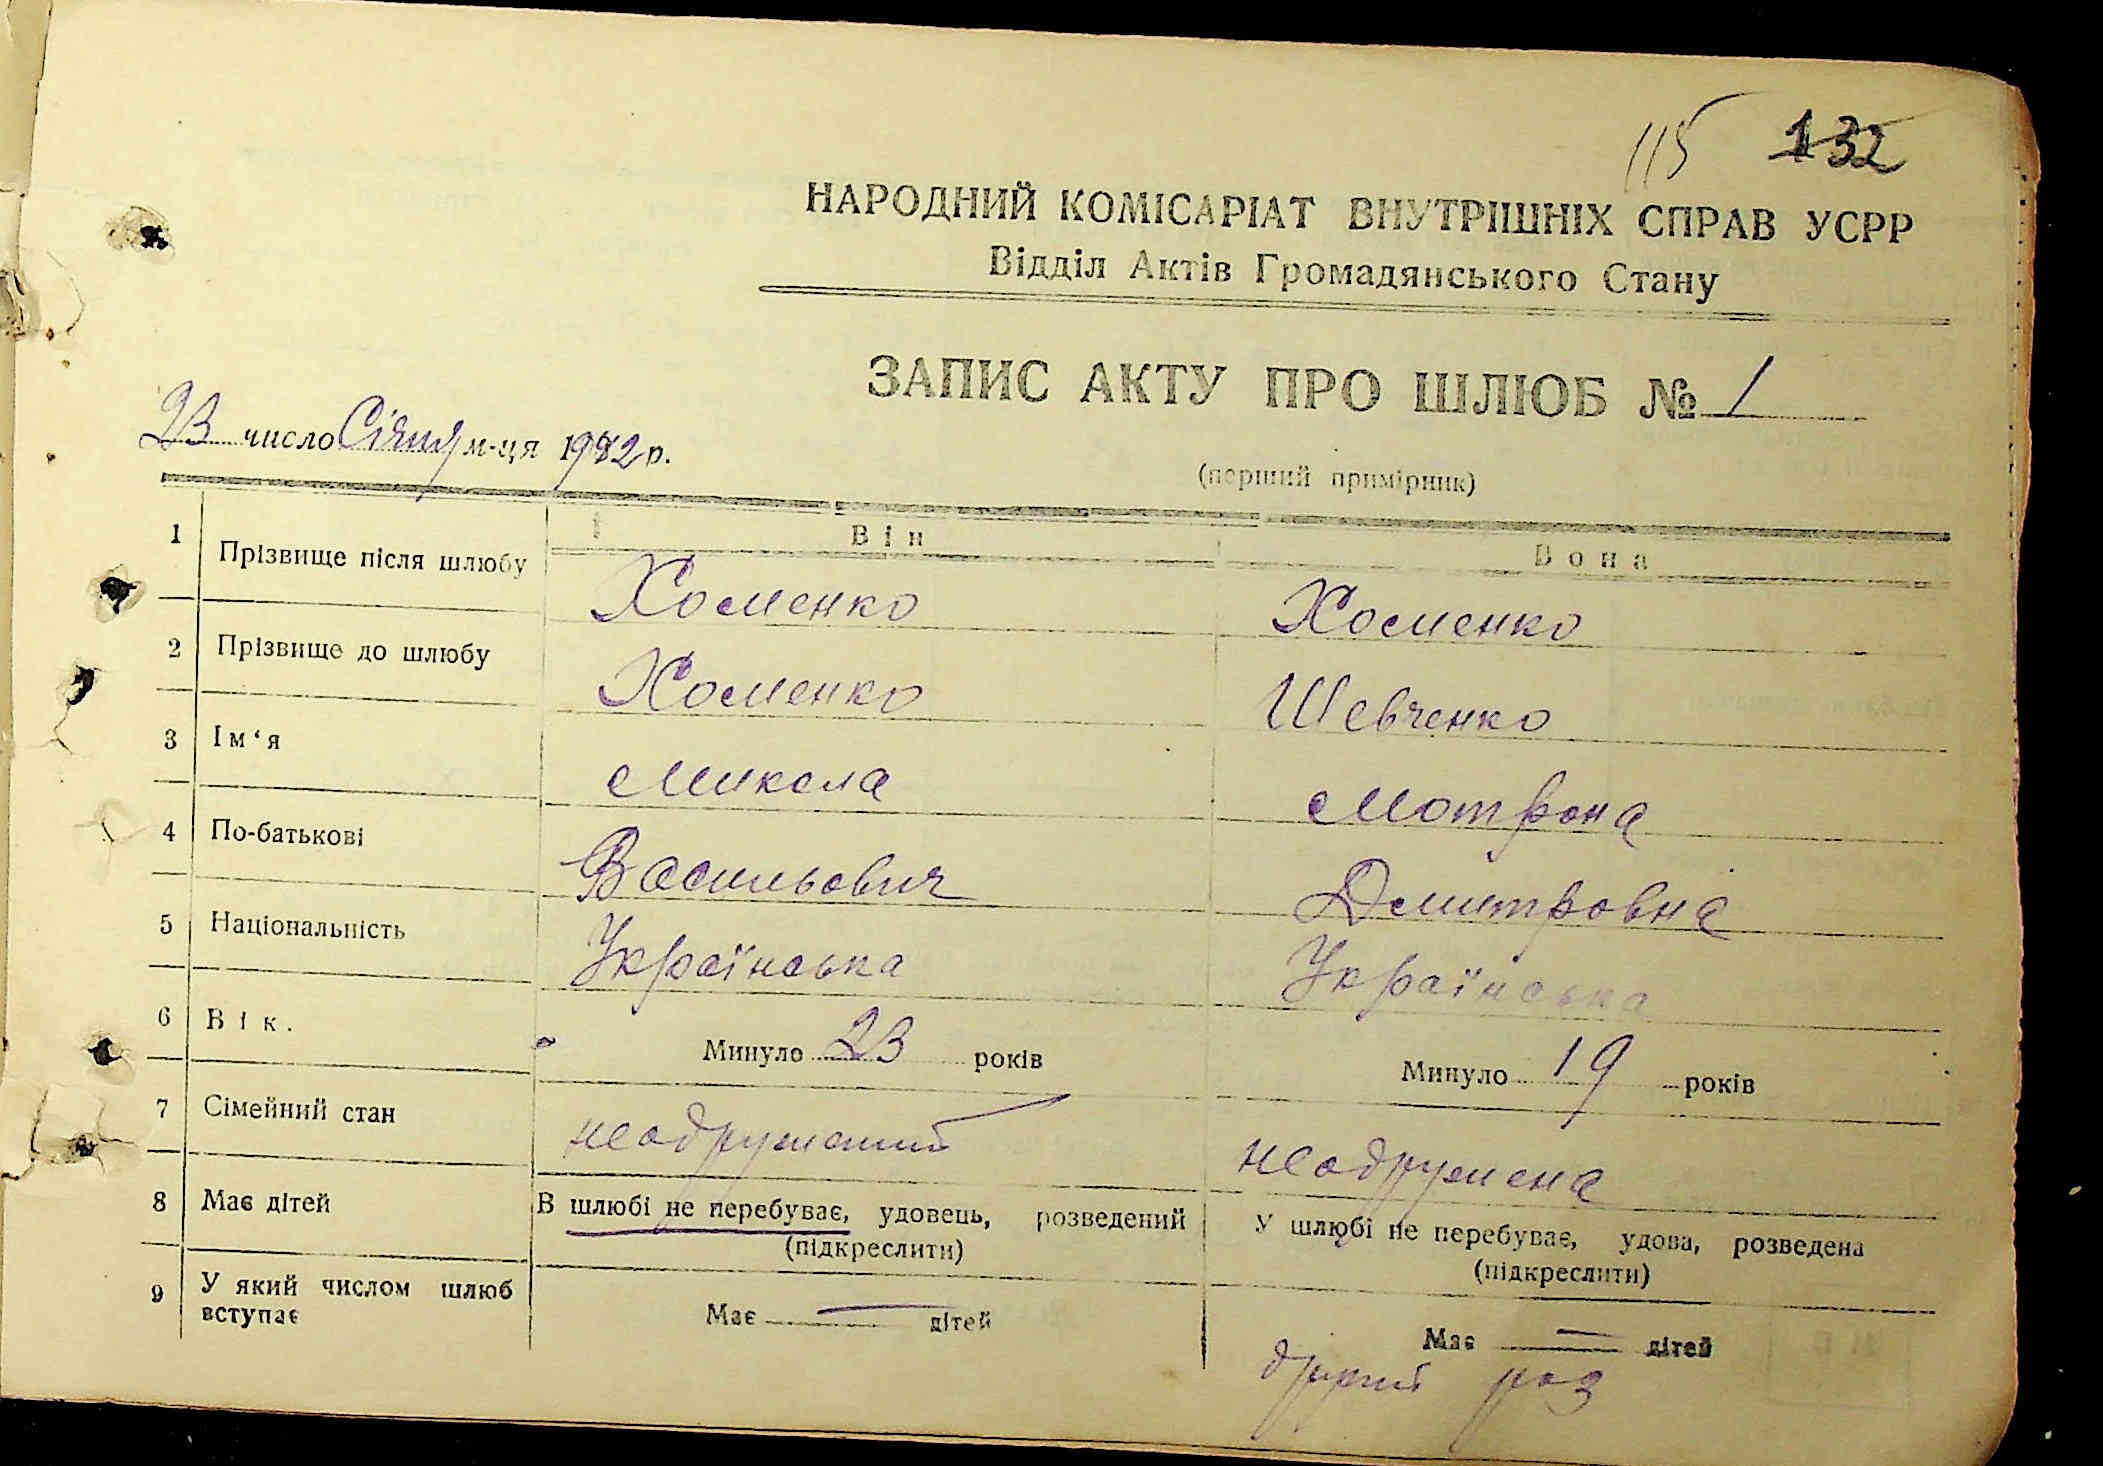 115 132
НАРОДНИЙ КОМІСАРІАТ ВНУТРІШНІХ СПРАВ УСРР
Відділ Актів Громадянського Стану
ЗАПИС АКТУ ПРО ШЛЮБ № 1
23 число Січня м-ця 1932 р.
(перший примірник)
Він Вона
1 Прізвище після шлюбу Хоменко Хоменко
2 Прізвище до шлюбу Хоменко Шевченко
3 Ім‘я Микола Мотрона
4 По-батькові Васильович Дмитровна
5 Національність Українська Українська
6 Вік. Минуло 23 років Минуло 19 років
7 Сімейний стан неодружений неодружена
8 Має дітей В шлюбі не перебуває, удовець, розведений У шлюбі не перебуває, удова, розведена
(підкреслити) (підкреслити)
9 У який числом шлюб
вступає Має — дітей Має — дітей
другий раз